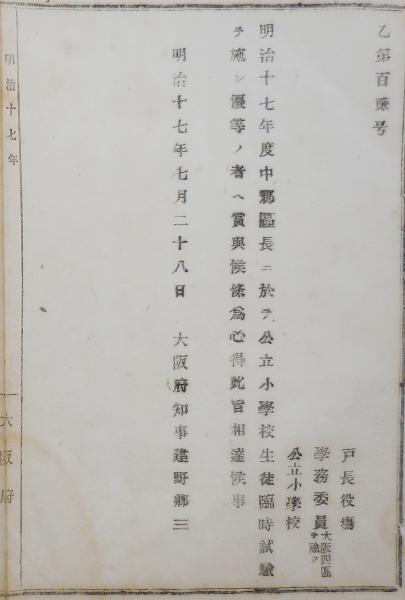 乙第百號号
戸長役塲
學務委員大阪四區ヲ除ク
公立小學校
明治十七年度中郡區長ニ於テ公立小學校生徒臨時試驗
ヲ施シ優等ノ者ヘ賞與候條爲心得此旨相達候事
明治十七年七月二十八日 大阪府知事建野郷三
明治十七年
大阪府